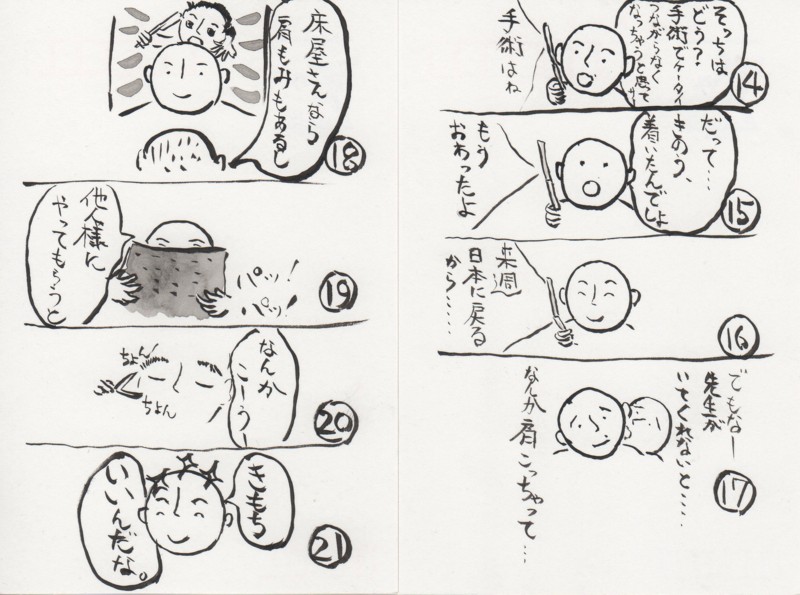 そっちは
どう？
手術でケータイ
つながらなく
なっちゃうと思って
サ
手術はね
14
だって…
きのう、
着いたんでしょ
もう
おわったよ
15
来週
日本に戻る
から……
16
でもなー
先生が
いてくれないと……
なんか肩こっちゃって…
17
床屋さんなら
肩もみもあるし
18
パッ！
パッ！
他人様に
やってもらうと
19
なんか
こーう
ちょん！
ちょん
20
きもち
いいんだな。
21